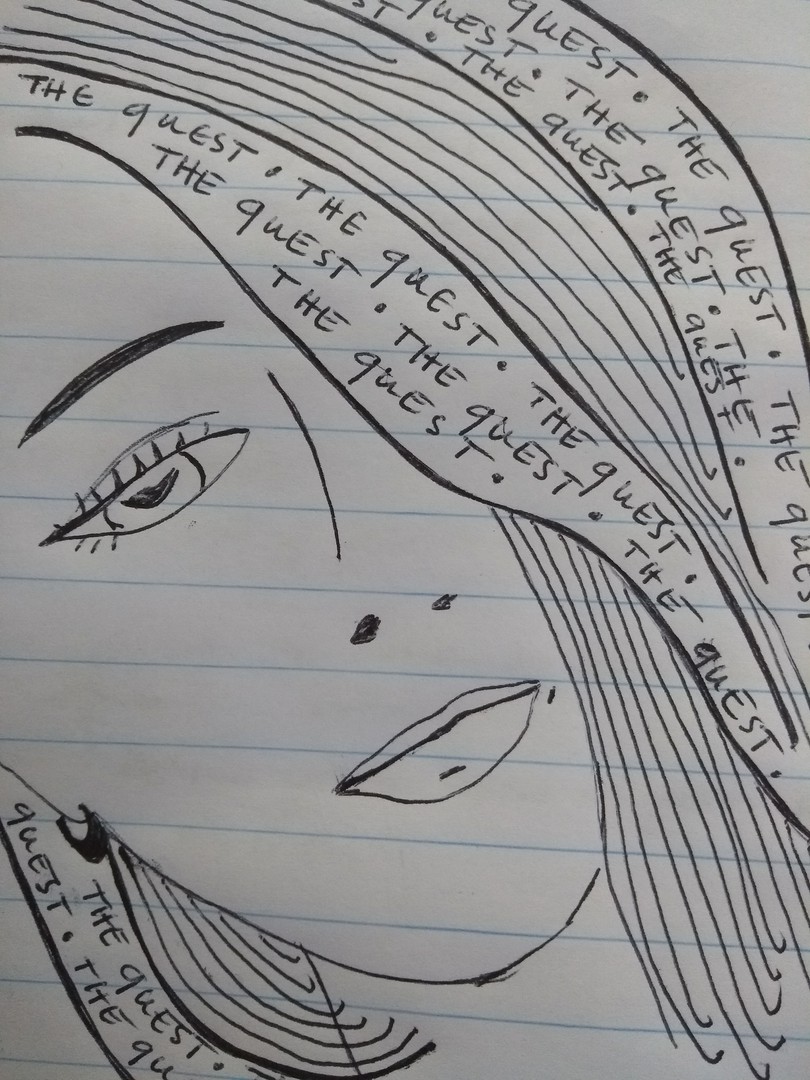 QUEST. THE QUEST. THE QUEST
QUEST. THE QUEST. THE
ST. THE QUEST. THE QUEST.
THE QUEST. THE QUEST. THE QUEST.
THE QUEST. THE QUEST. THE QUEST.
THE QUEST.
QUEST. THE QU
THE QUEST.